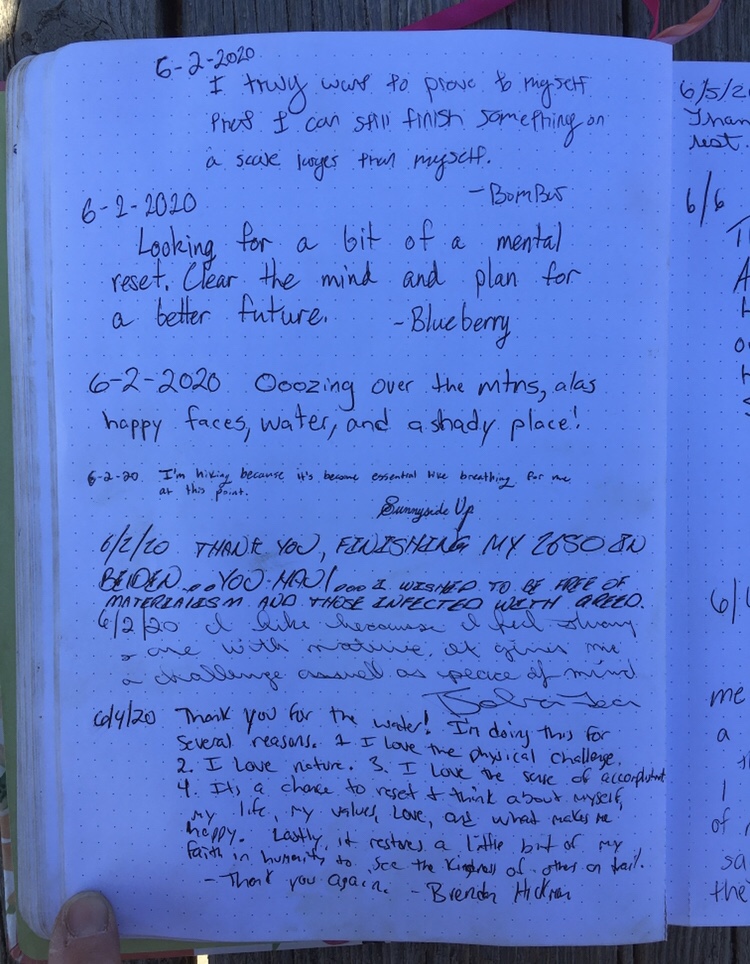 6-2-2020
I truly want to prove to myself
that I can still finish something on
a scale larger than myself.
- BomBus
6-2-2020
Looking for a bit of a mental
reset. Clear the mind and plan for
a better future. - Blueberry
6-2-2020 Ooozing over the mtns, alas
happy faces, water, and a shady place!
6-2-20 I'm hiking because it's become essential like breathing for me
at this point.
Sunnyside Up
6/2/20 THANK YOU, FINISHING MY 2650 IN
YOU I WISHED TO BE FREE OF
MATERIALISM AND THOSE INFECTED WITH GREED.
6/2/20 I like because I feel strong
& one with nature. It gives me
a challenge aswell as peace of mind
6/4/20 Thank you for the water! I'm doing this for
several reasons. 1. I love the physical challenge.
2. I love nature. 3. I love the sense of
4. Its a chance to reset & think about myself,
my life, my values, love, and what makes me
happy. Lastly, it restores a little bit of my
faith in humanity to see the kindness of others on trail.
- Thank you again. - Brendan Hickman
6/5/2
Than
rest.
6/6
A
H
6/
me
a
I
of
sa
the